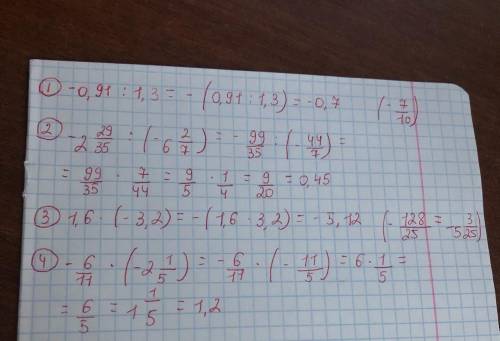 ① -0,91 : 1,3 = -(0,91 : 1,3) = -0,7 (-7/10)
② -2 29/35 : (-6 2/7) = -99/35 : (-44/7) =
= 99/35 · 7/44 = 9/5 · 1/4 = 9/20 = 0,45
③ 1,6 · (-3,2) = -(1,6 · 3,2) = -5,12 (-128/25 = -5 3/25)
④ -6/11 · (-2 1/5) = -6/11 · (-11/5) = 6 · 1/5 =
= 6/5 = 1 1/5 = 1,2